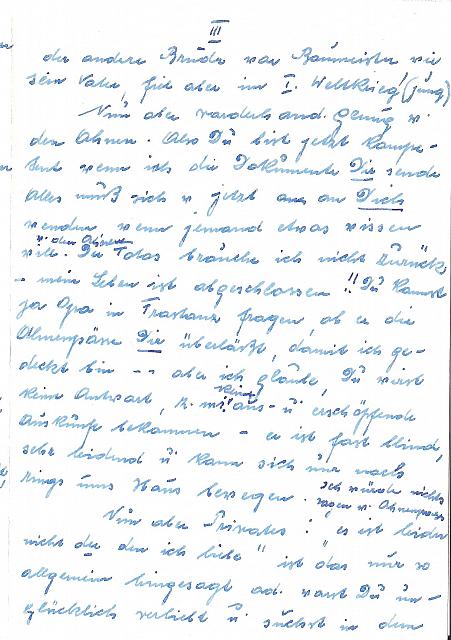 III
der andere Bruder war Baumeister wie
sein Vater, fiel aber im I. Weltkrieg (jung)
Nun aber anderes genug v.
den Ahnen. Also Du bist jetzt kompe-
tent wenn ich die Dokumente Dir sende
alles muß sich v jetzt an an Dich
wenden wenn jemand etwas wissen
v. den Ahnen
will. Die Fotos brauche ich nicht zurück,
– mein Leben ist abgeschlossen!! Du kannst
ja Opa in Frastanz fragen, ob er die
Ahnenpässe Dir überläßt, damit ich ge-
deckt bin –– aber ich glaube, Du wirst
keine Antwort, z. m. keine aus- u erschöpfende
Auskünfte bekommen – er ist fast blind,
sehr leidend u kann sich nur noch
rings ums Haus bewegen. Ich würde nichts
sagen v. Ahnenpass
Nun aber Privates: "es ist leider
nicht der den ich liebe" ist das nur so
allgemein hingesagt od. warst Du un-
glücklich verliebt u suchst in dem